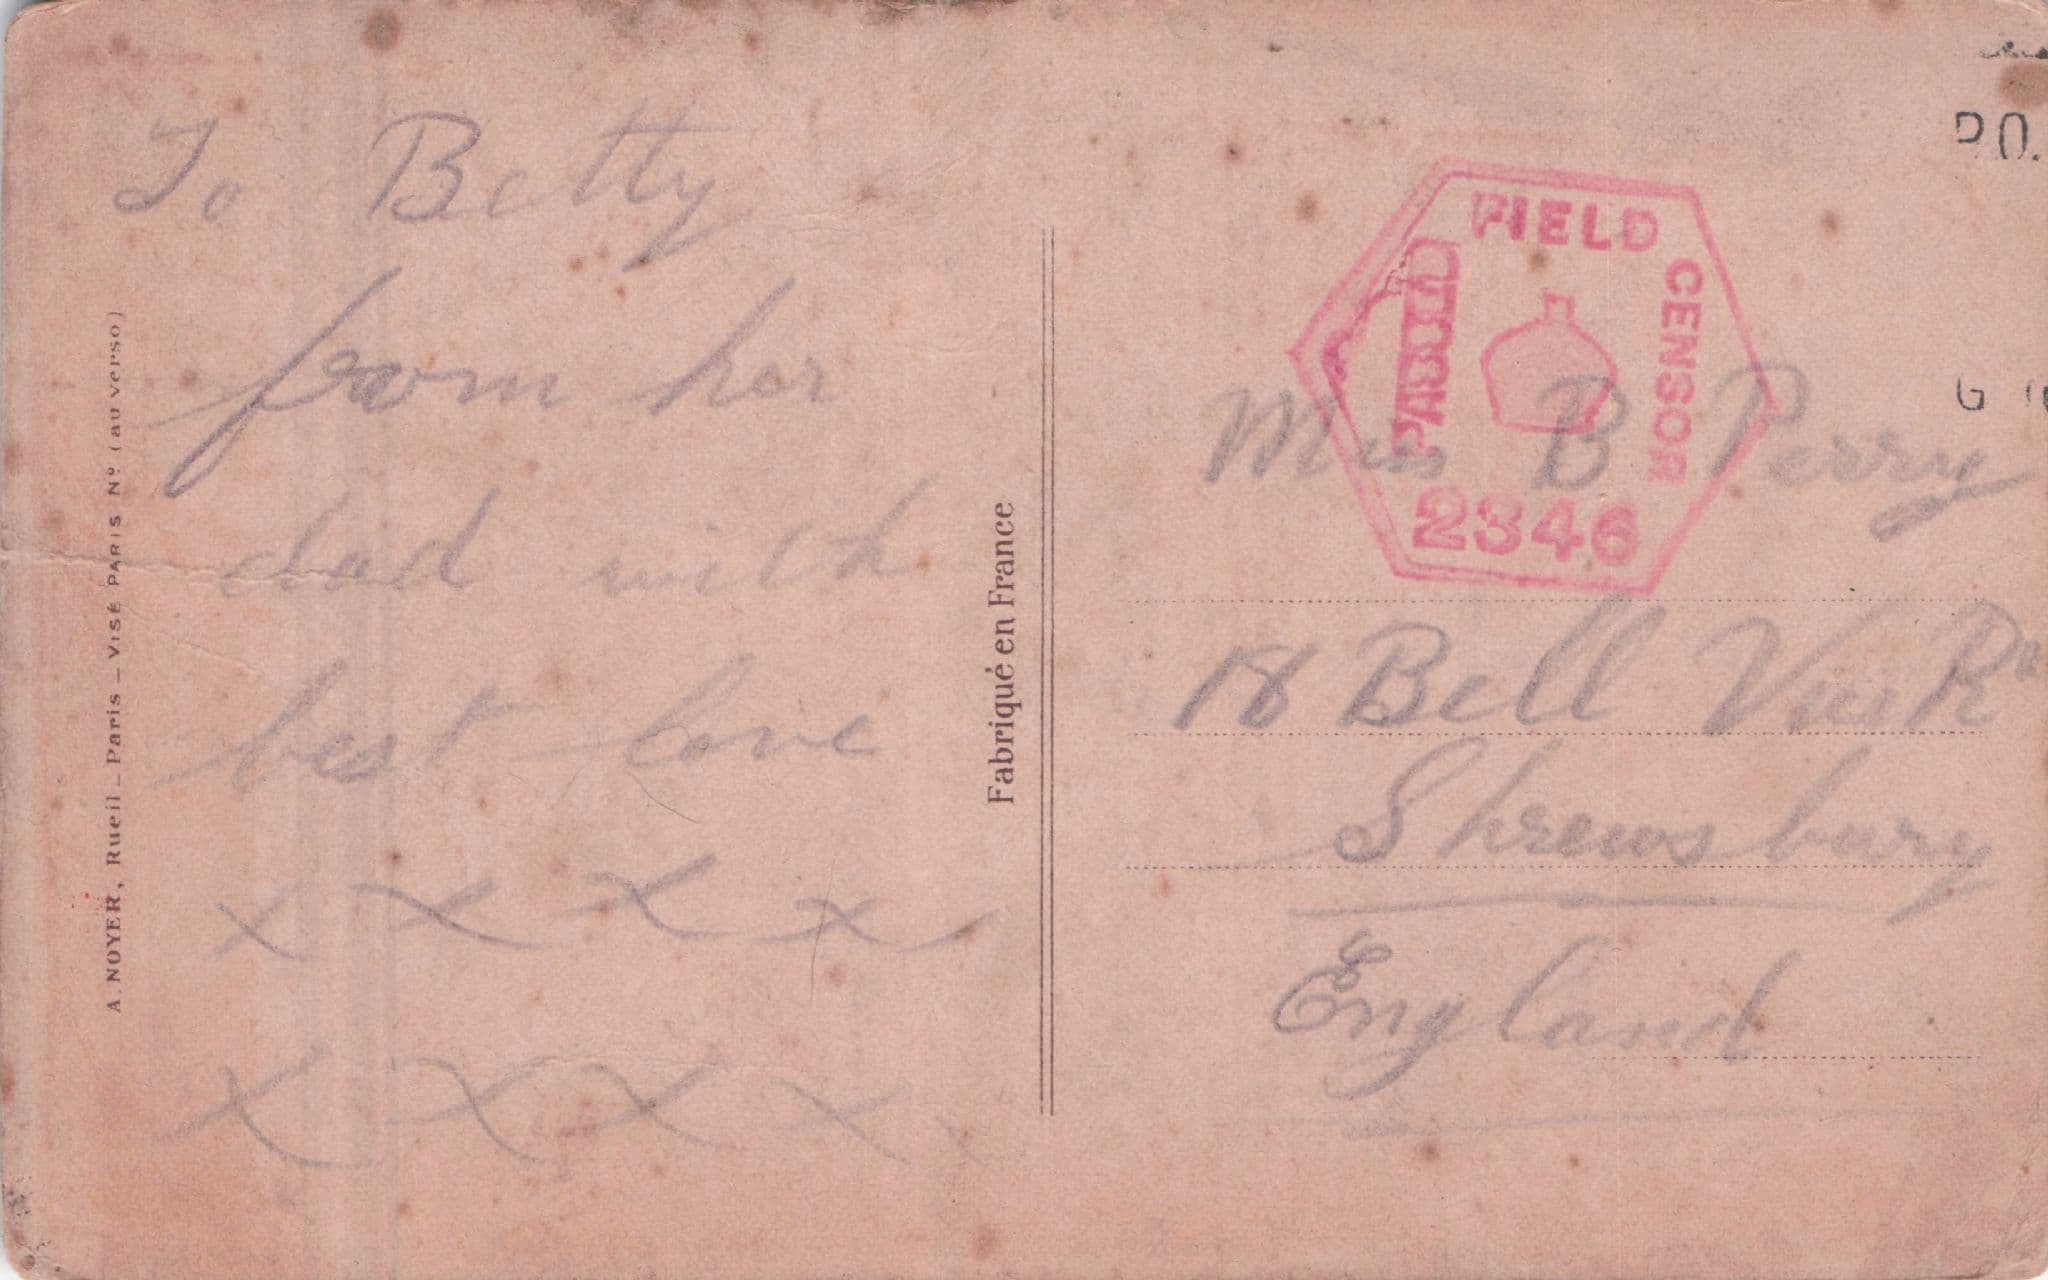 To Betty
from her
dad with
best love
x x x x
x x x x
A. NOYER, Rueil _ Paris _ VISÉ PARIS Nº (au verso)
Fabriqué en France
FIELD
CENSOR
PASSED
2346
P.O.
Miss B Perry
18 Bell Vue Rd
Shrewsbury
England